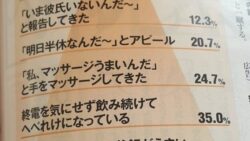 「いま彼氏いないんだ〜」
と報告してきた 12.3%
「明日半休なんだ〜」とアピール 20.7%
「私、マッサージうまいんだ」
と手をマッサージしてきた 24.7%
終電を気にせず飲み続けて
へべれけになっている 35.0%